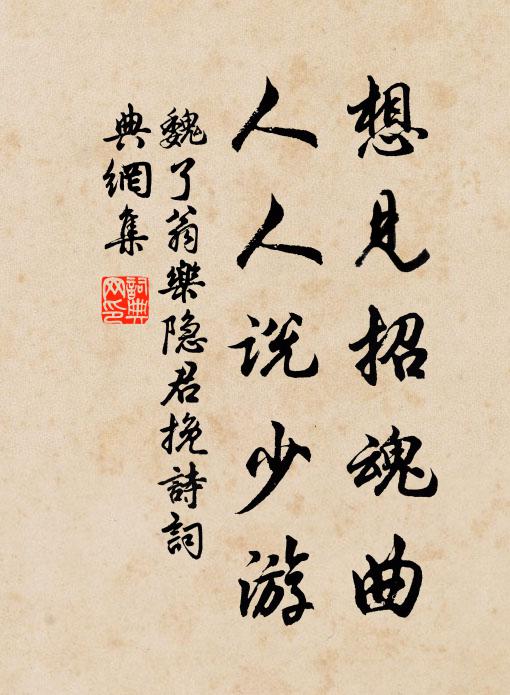 想见招魂曲
人人说少游
魏了翁樂隐君挽詩詞
典網集
詞典
网印